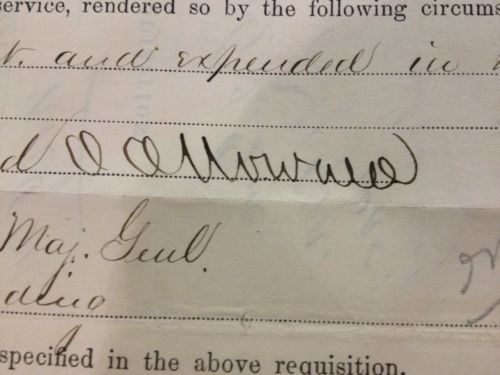 service, rendered so by the following circums
t. and expended in
d O O Howard
Maj. Genl.
ding
specified in the above requisition.